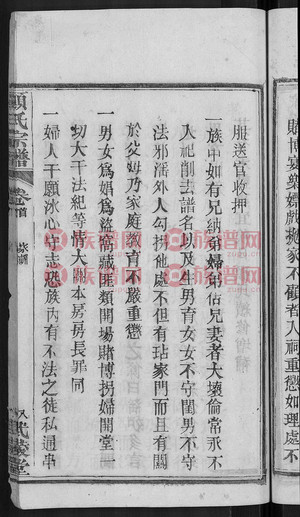 賭博宴樂嫖戲搬家不礙者入祠重懲如理處不
服送官收押
一族中如有兄納弟婦弟佔兄妻者大壞倫常永不
入祀削去諸名以及生男育女女不守閨男不守
法邪淫外人勾拐他處不但有玷家門而且有關
於父母乃家庭教育不嚴重懲
一男女爲娼爲盜窩藏匪類開場賭博拐婦鬧堂一
切大干法紀等情大做本房房長罪同
一婦人干願冰心守志恐族內有不法之徒私通串
顧氏宗譜
族譜网
zupu.cn